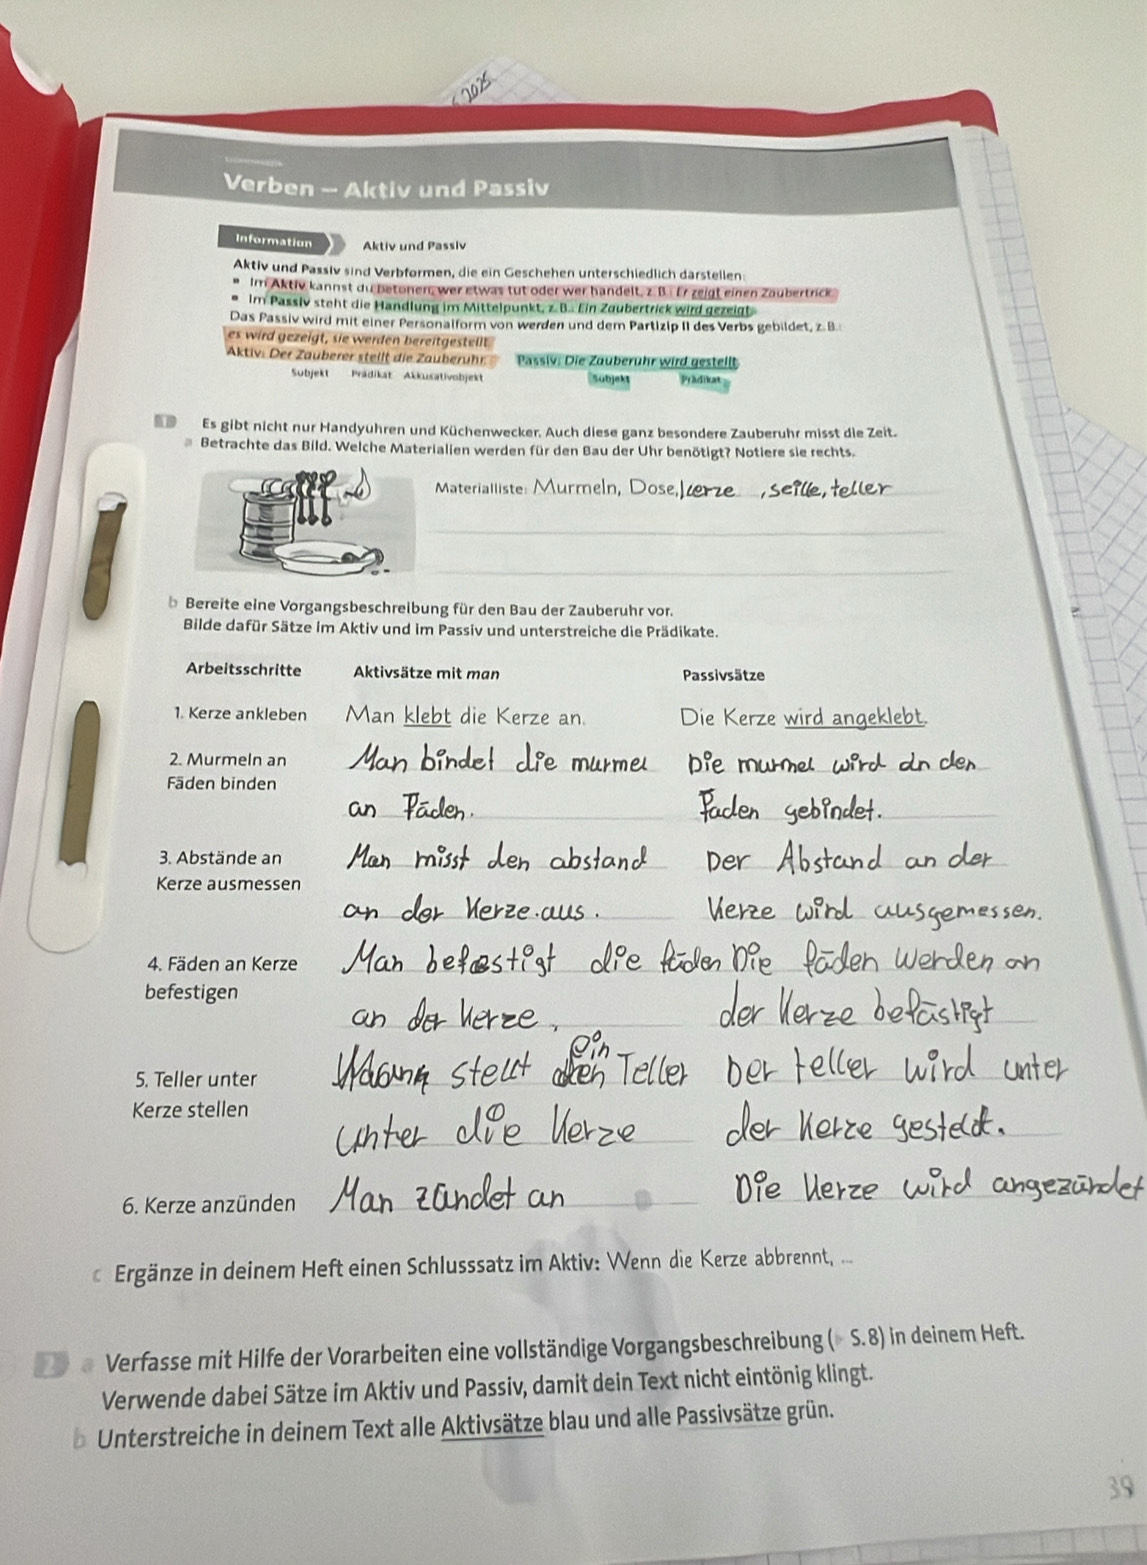 2025
Verben – Aktiv und Passiv
Information Aktiv und Passiv
Aktiv und Passiv sind Verbformen, die ein Geschehen unterschiedlich darstellen:
Im Aktiv kannst du betonen, wer etwas tut oder wer handelt, z. B.: Er zeigt einen Zaubertrick.
Im Passiv steht die Handlung im Mittelpunkt, z. B.: Ein Zaubertrick wird gezeigt.
Das Passiv wird mit einer Personalform von werden und dem Partizip II des Verbs gebildet, z. B.:
es wird gezeigt, sie werden bereitgestellt.
Aktiv: Der Zauberer stellt die Zauberuhr. Passiv: Die Zauberuhr wird gestellt.
Subjekt Prädikat Akkusativobjekt Subjekt Prädikat
1 Es gibt nicht nur Handyuhren und Küchenwecker. Auch diese ganz besondere Zauberuhr misst die Zeit.
a Betrachte das Bild. Welche Materialien werden für den Bau der Uhr benötigt? Notiere sie rechts.
Materialliste: Murmeln, Dose, kerze, seille, teller
b Bereite eine Vorgangsbeschreibung für den Bau der Zauberuhr vor.
Bilde dafür Sätze im Aktiv und im Passiv und unterstreiche die Prädikate.
Arbeitsschritte Aktivsätze mit man Passivsätze
1. Kerze ankleben Man klebt die Kerze an. Die Kerze wird angeklebt.
2. Murmeln an Man bindet die murmel Die murmel wird an den
Fäden binden an Fäden. Faden gebindet.
3. Abstände an Man misst den abstand Der Abstand an der
Kerze ausmessen an der Kerze. aus. Kerze wird ausgemessen.
4. Fäden an Kerze Man befestigt die fäden Die fäden werden an
befestigen an der kerze, der Kerze befästigt
ein
5. Teller unter stellt Teller Der teller wird unter
Kerze stellen unter die Kerze der Kerze gestellt.
6. Kerze anzünden Man zündet an Die Kerze wird angezündet
c Ergänze in deinem Heft einen Schlusssatz im Aktiv: Wenn die Kerze abbrennt, ...
2 a Verfasse mit Hilfe der Vorarbeiten eine vollständige Vorgangsbeschreibung (▸ S. 8) in deinem Heft.
Verwende dabei Sätze im Aktiv und Passiv, damit dein Text nicht eintönig klingt.
b Unterstreiche in deinem Text alle Aktivsätze blau und alle Passivsätze grün.
39